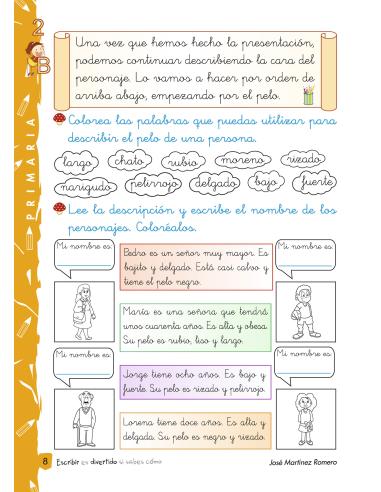 2
B
PRIMARIA
Una vez que hemos hecho la presentación,
podemos continuar describiendo la cara del
personaje. Lo vamos a hacer por orden de
arriba abajo, empezando por el pelo.
Colorea las palabras que puedas utilizar para
describir el pelo de una persona.
largo chato rubio moreno rizado
narigudo pelirrojo delgado bajo fuerte
Lee la descripción y escribe el nombre de los
personajes. Coloréalos.
Mi nombre es:
Mi nombre es:
Pedro es un señor muy mayor. Es
bajito y delgado. Está casi calvo y
tiene el pelo negro.
María es una señora que tendrá
unos cuarenta años. Es alta y obesa.
Su pelo es rubio, liso y largo.
Mi nombre es:
Mi nombre es:
Jorge tiene ocho años. Es bajo y
fuerte. Su pelo es rizado y pelirrojo.
Lorena tiene doce años. Es alta y
delgada. Su pelo es negro y rizado.
8 Escribir es divertido si sabes cómo José Martínez Romero